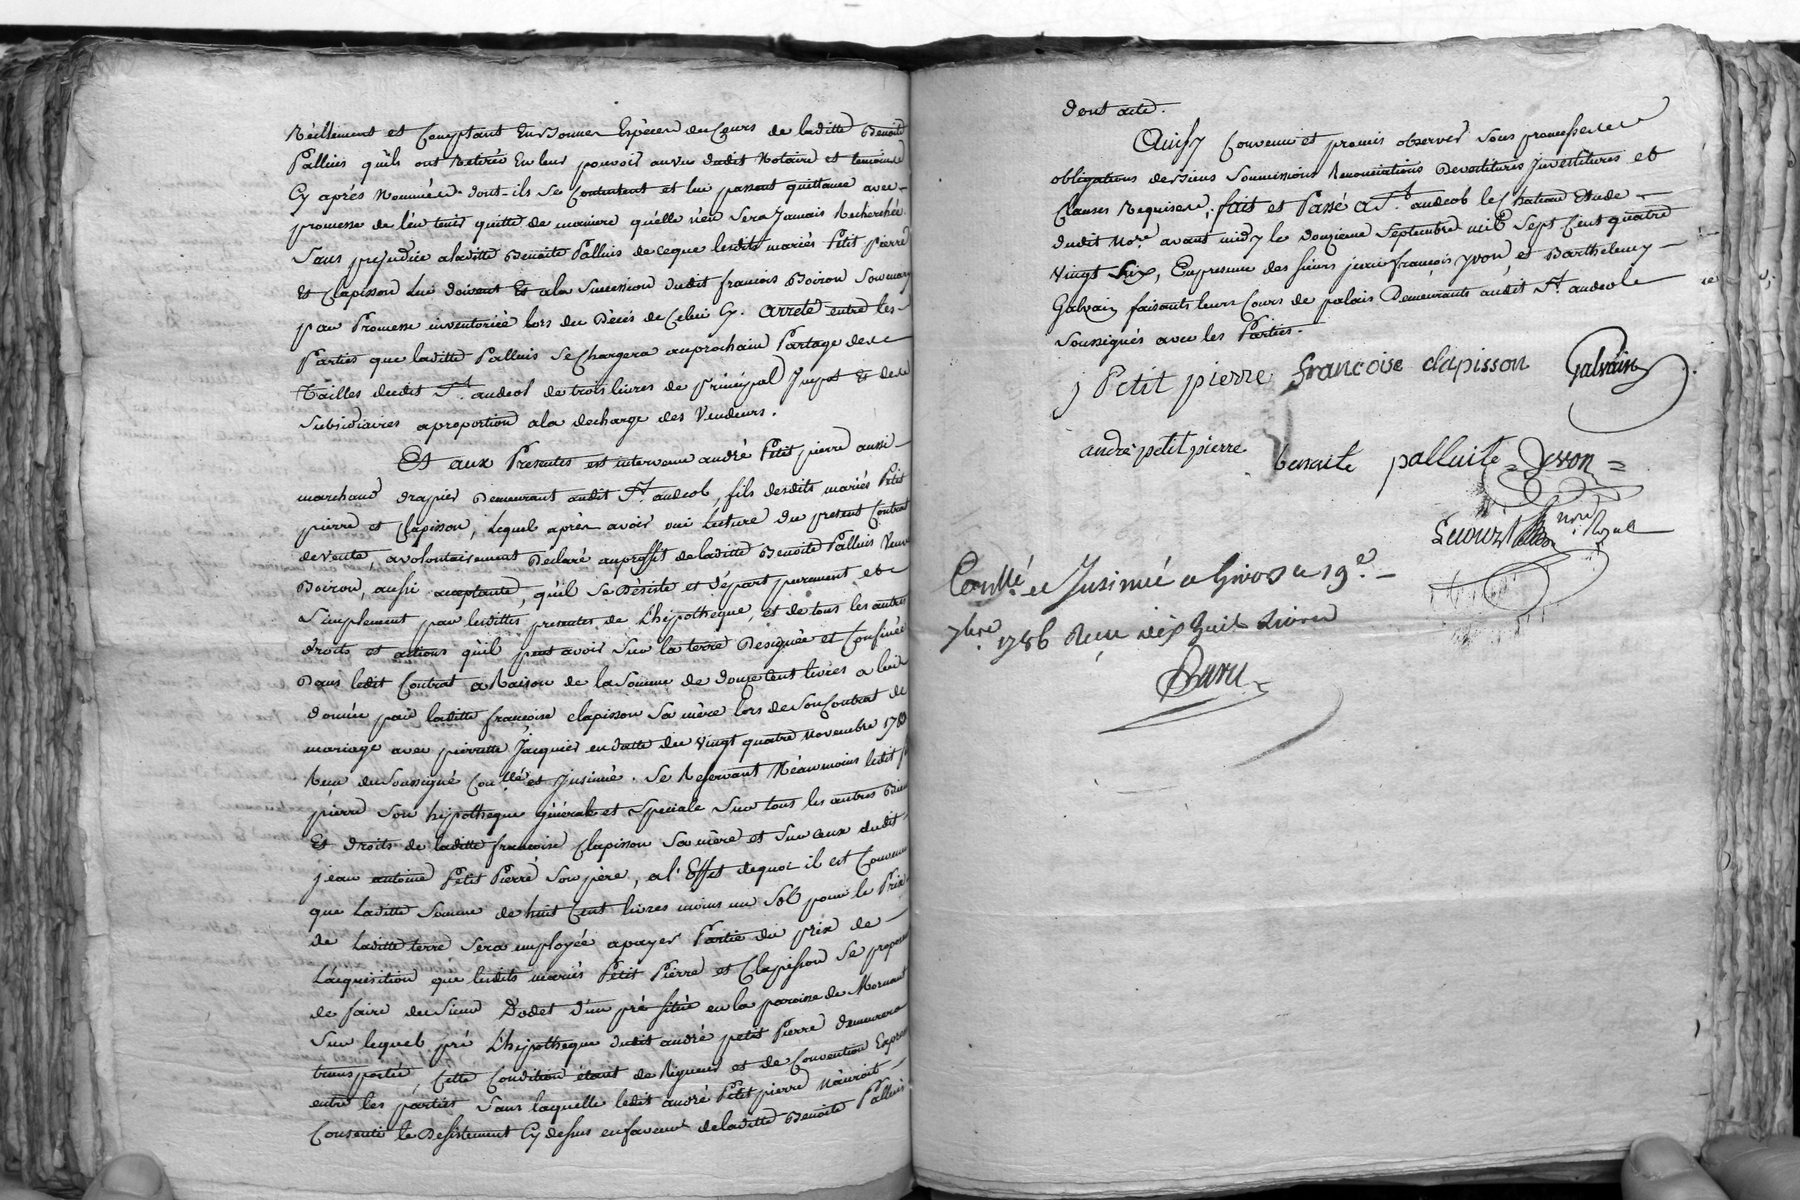 Réellement et Comptant En bonnes Espèces du Cours de laditte Benoite
Palluis qu'ils ont Retirée En leur pouvoir au vu dudit Notaire et temoins
Cy après Nommés dont-ils se Contentent et lui passent quittance avec
promesse de l'en tenir quitte de maniere qu'elle n'en sera Jamais Recherchée
Sans prejudice a laditte Benoite Palluis de ce que lesdits mariés Petit pierre
Et Clapisson Lui doivent Et a la Succession dudit francois Boiron Son mary
par Promesse inventoriée lors du Décès de Celui Cy. arrêté entre les
Parties que laditte Palluis Se Chargera au prochain Partage des
Tailles dudit St. andeol de trois livres de principal Impot Et des
Subsidiaires a proportion a la decharge des Vendeurs.
Et aux Presentes est intervenu andré Petit pierre aussi
marchand drapier Demeurant audit St. andeol, fils desdits mariés Petit
pierre et Clapisson, Lequel après avoir oui Lecture du present Contrat
de vente, a volontairement Déclaré au proffit de laditte Benoite Palluis Veuve
Boiron, aussi acceptante, qu'il se Désiste et départ purement et
Simplement par lesdittes presentes de L'hipotheque, et de tous les autres
droits et actions qu'il peut avoir Sur la terre Designée et Confinée
Dans ledit Contrat a Raison de la Somme de douze Cent livres a lui
donnée par laditte françoise clapisson Sa mère lors de son Contrat de
mariage avec pierrette Jacquier en datte du Vingt quatre Novembre 178
Reçu du Soussigné Conllé et Insinué. Se Reservant Néanmoins ledit
pierre Son hipotheque générale et Speciale Sur tous les autres Biens
Et droits de laditte francoise Clapisson Sa mère et Sur ceux dudit
jean antoine Petit Pierre Son père, a l'Effet de quoi il est Convenu
que Laditte Somme de huit Cent livres moins un Sol pour le Prix
de Laditte terre Sera employée a payer Partie du prix de
L'acquisition que lesdits mariés Petit Pierre et Clapisson Se proposent
de faire du Sieur Dodet d'un pré situé en la paroisse de Mornant
Sur lequel pré L'hipotheque dudit andré petit Pierre demeurera
transportée, Cette Condition étant de Rigueur et de Convention Expresse
entre les parties Sans laquelle ledit andré Petit pierre N'auroit
Consenti le Desistement Cy dessus en faveur de laditte Benoite Palluis
dont acte.
Ainsy Convenu et promis observer sous promesses
obligations de biens Soumissions Renonciations Devestitures Investitures et
Clauses Requises; fait et Passé a St. andeol le Chateau Etude
dudit Nore. avant midy le douzieme Septembre mil Sept Cent quatre
Vingt Six, En presence des sieurs jean françois yvon, et Barthelemy
Galvain faisants leurs Cours de palais Demeurants audit St. andeol
Soussignés avec les Parties.
j Petit pierre francoise clapisson Galvain
andré petit pierre benoite palluite yvon
nore. Royal
Conllé. et Insinué a Givors le 19e.
7bre. 1786 Reçu dix huit Livres